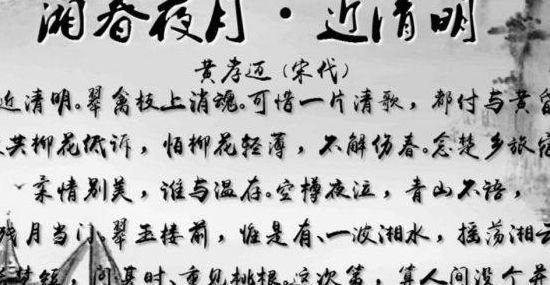 湘春夜月·近清明
黄孝迈(宋代)
近清明。翠禽枝上消魂。可惜一片清歌，都付与黄昏
共柳花低诉，怕柳花轻薄，不解伤春。念楚乡旅宿
柔情别美，谁与温存。空樽夜泣，青山不语，
残月当门。翠玉楼前，惟是有、一波湘水，摇荡湘云
梦短，问甚时、重见桃根。这次第，算人间没个并